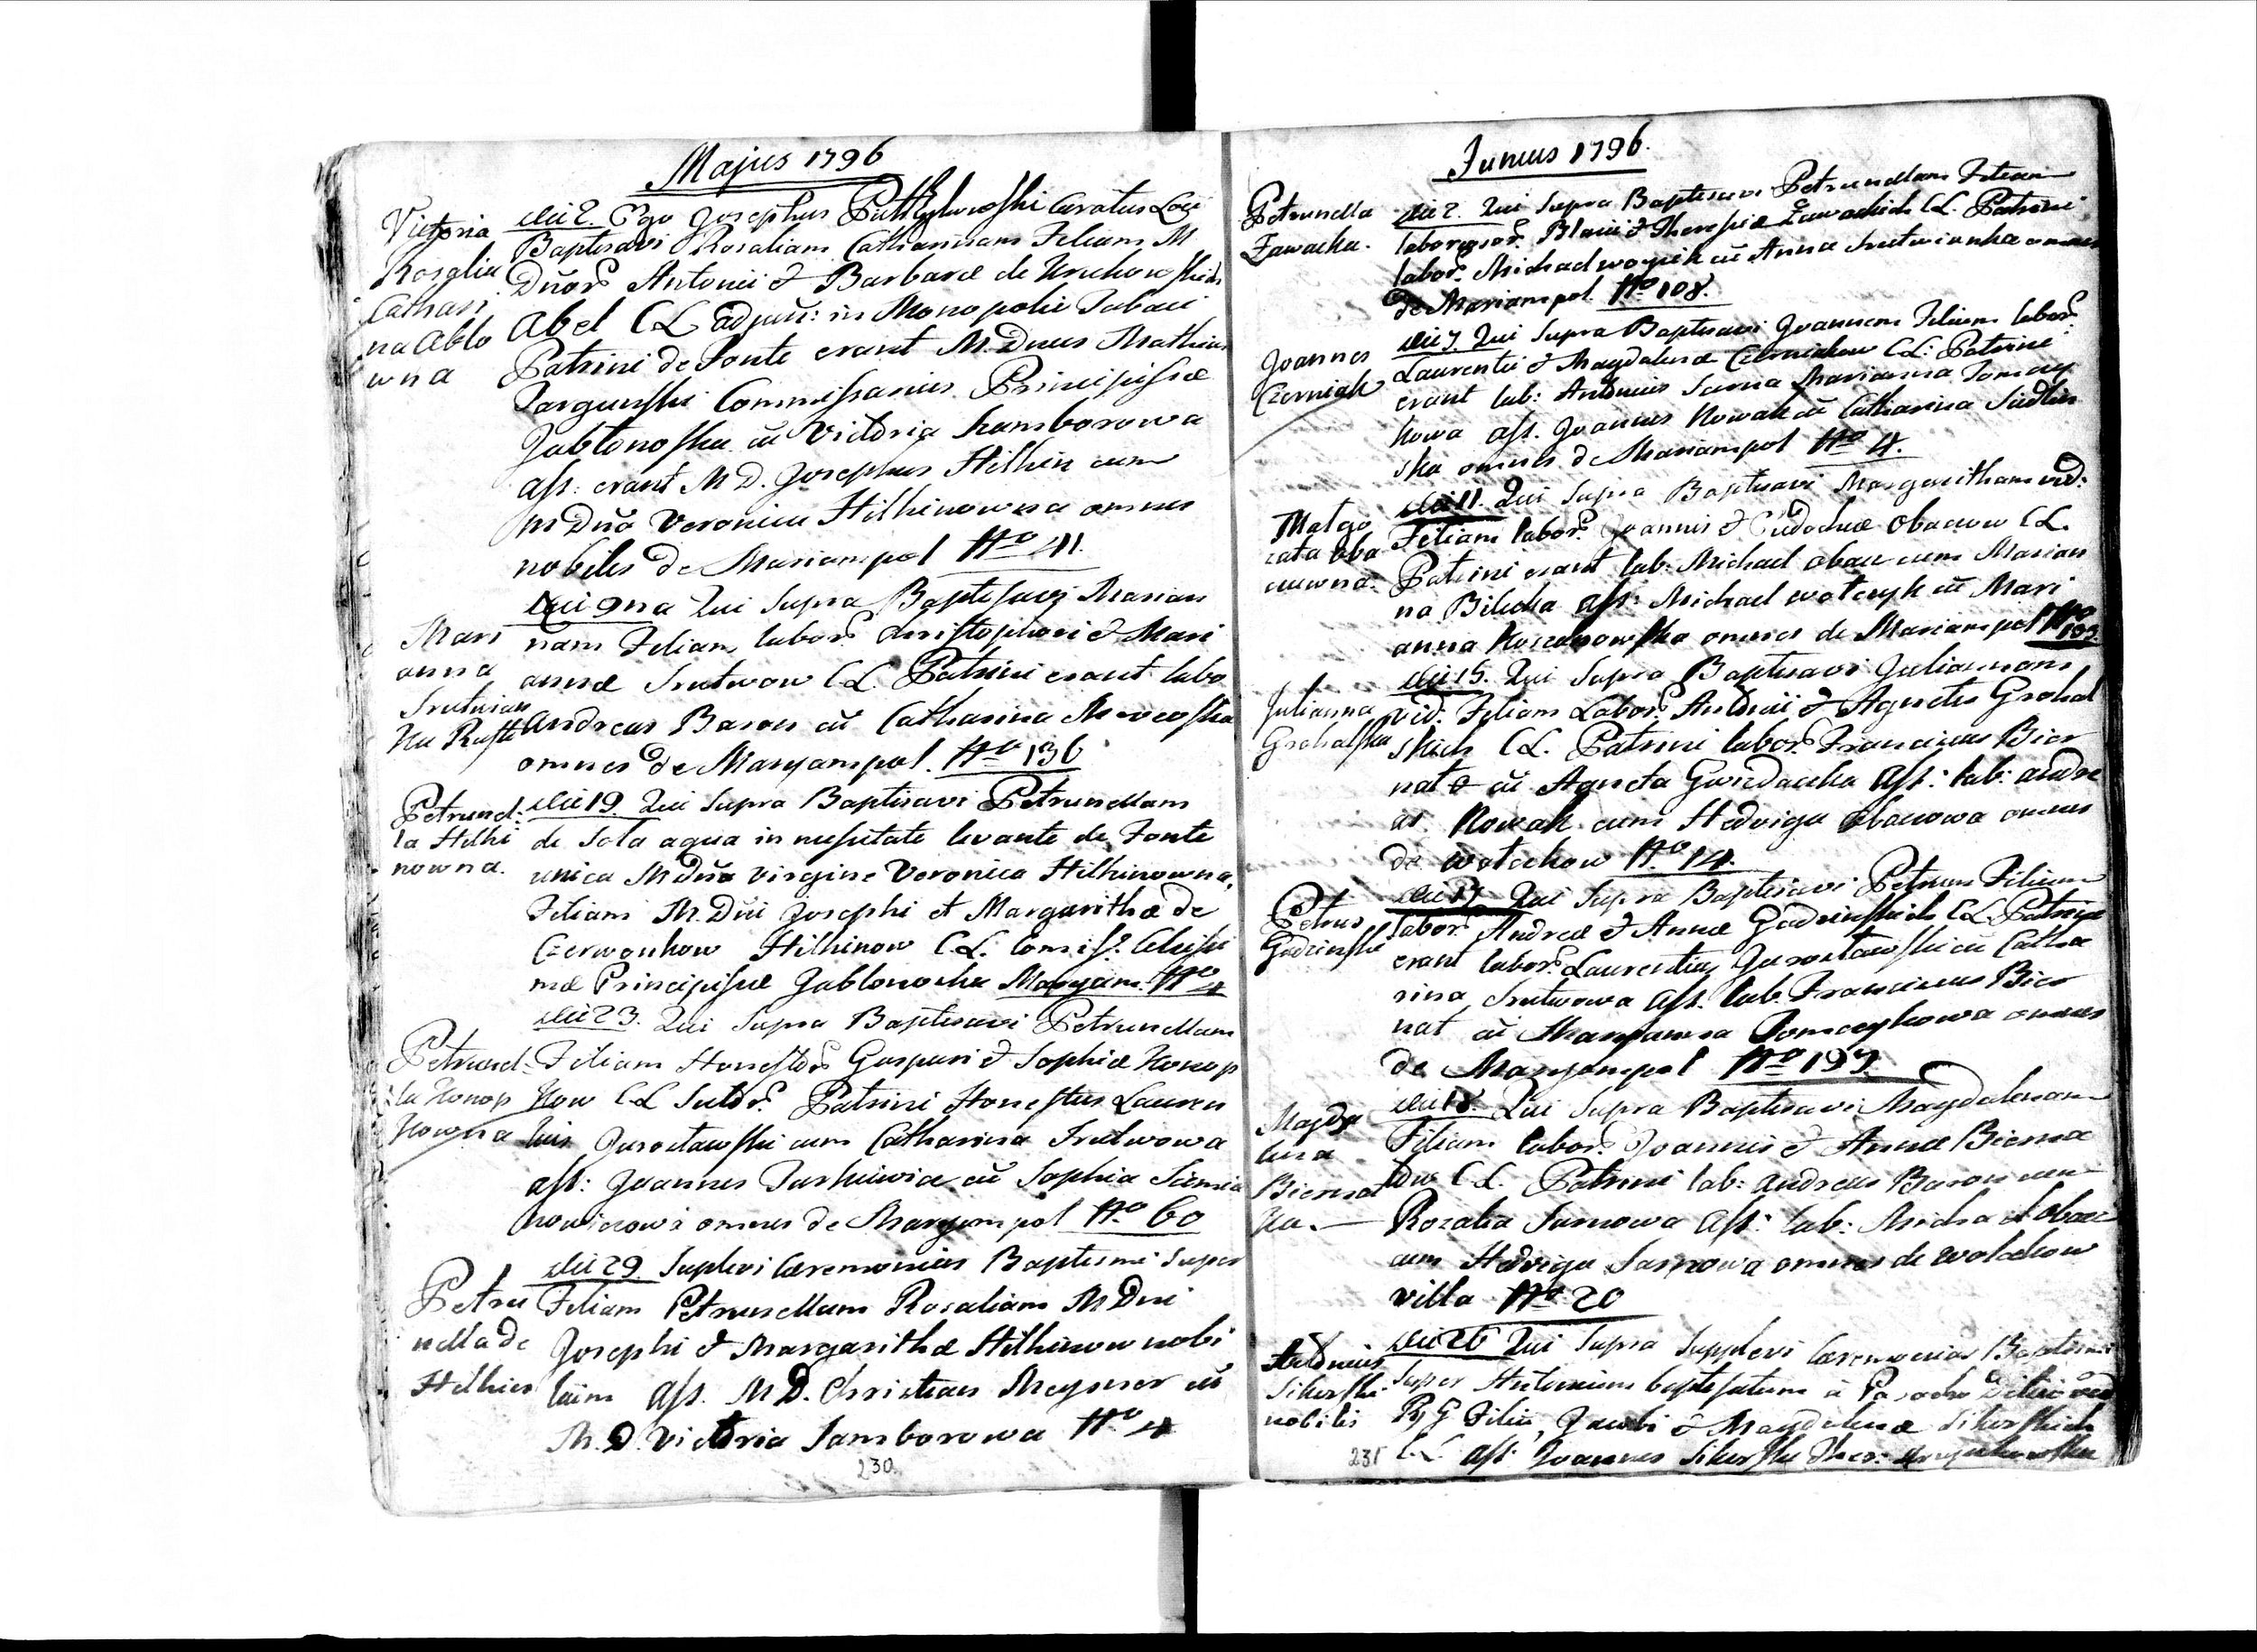 Majus 1796
Victoria
Rosalia
Cathari
na Ablo
wna
die 2. Ego Josephus Curatus Loci
Baptisavi Rosaliam Catharinam Filiam M
Dnor. Antonii & Barbaræ de
Abel CL adjun: in Monopolii Tabaci
Patrini de Fonte erant M. Dnus Mathias
Commissarius Principissæ
cu Victoria Samborowa
ass: erant M D. Josephus Hilhin cum
M Dna Veronica Hilhinowna omnes
nobiles de Mariampol No 41.
Mari
anna
Srutwian
ka
die 9na Qui Supra Baptisavi Marian
nam Filiam labor. Christophori & Mari
annæ Srutwow CL. Patrini erant labo
Andreas Baron cu Catharina
omnes de Maryampol. No 136
Petrunel:
la Hilhi
nowna.
die 19. Qui Supra Baptisavi Petrunellam
de Sola aqua in nessitate levante de Fonte
unica M Dna virgine Veronica Hilhinowna,
Filiam M. Dni Josephi et Margarithæ de
Czerwonkow Hilhinow CL. Comiss.
mæ Principissæ Maryam. No 4
Petrunel:
la Konop
kowna
die 23. Qui Supra Baptisavi Petrunellam
Filiam Honestor Gaspari & Sophiæ Konop
kow CL Sutor. Patrini Honestus Lauren
tius Jaroslawski cum Catharina Srutwowa
ass: Joannes cu Sophia Siemia
nowiczowa omnes de Maryampol No 60
Petru
nella de
Hilhin
die 29. Suplevi Cæremonias Baptismi super
Filiam Petrunellam Rosaliam M Dni
Josephi & Margarithæ Hilhinow nobi
lium ass. M D. Christian Meysner cu
M. D. Victoria Samborowa No 4
230
Junius 1796.
Petrunella
Zawacka.
die 2. Qui Supra Baptisavi Petrunellam Filiam
laboriosor. Blasii & Theressiæ Zawackich CL. Patrini
labor. Michael woycik cu Anna Srutwianka omnes
de Mariampol. No 108.
Joannes
Czerniak
die 7. Qui Supra Baptisavi Joannem Filium labor.
Laurentii & Magdalenæ Czerniakow CL: Patrini
erant lab: Antonius Sarna Marianna Tomczy
kowa ass. Joannes Nowak cu Catharina Siedlin
ska omnes de Mariampol No 4.
Malgo
rzata Oba
cuowna.
die 11. Qui Supra Baptisavi Margaritham vid:
Filiam labor. Joannis & Eudochiæ Obacuow CL.
Patrini erant lab: Michael obacu cum Marian
na Bilicka ass: Michael wolczyk cu Mari
anna omnes de Mariampol No
Julianna
Grohalska
die 15. Qui Supra Baptisavi Juliannam
vid: Filiam Labor. Andreæ & Agnetis Grohal
skich CL. Patrini labor. Franciscus Bier
nat cu Agneta ass: lab: Andre
as Nowak cum Hedviga Obacuowa omnes
de wolczkow No 14.
Petrus
Gudzinski
die 17. Qui Supra Baptisavi Petrum Filium
labor. Andreæ & Annæ Gudzinskich CL. Patrini
erant labor. Laurentius Jaroslawski cu Catha
rina Srutwowa ass. lab. Franciscus Bier
nat cu Maryanna Tomczykowa omnes
de Maryampol No 197.
Magda
lena
Biernat
ka.
die 18. Qui Supra Baptisavi Magdalenam
Filiam labor. Joannis & Annæ Bierna
tow CL. Patrini lab: Andreas Baron cum
Rozalia Sarnowa ass: lab: Michael obacu
cum Hedviga Sarnowa omnes de wolczkow
villa No 20
Antonius
Sikorski
nobilis
die 26 Qui Supra Supplevi Cæremonias Baptismi
super Antonium baptisatum à Parocho
Filiu, Jacobi & Magdalenæ Sikorskich
CL ass: Joannes Sikorski
231